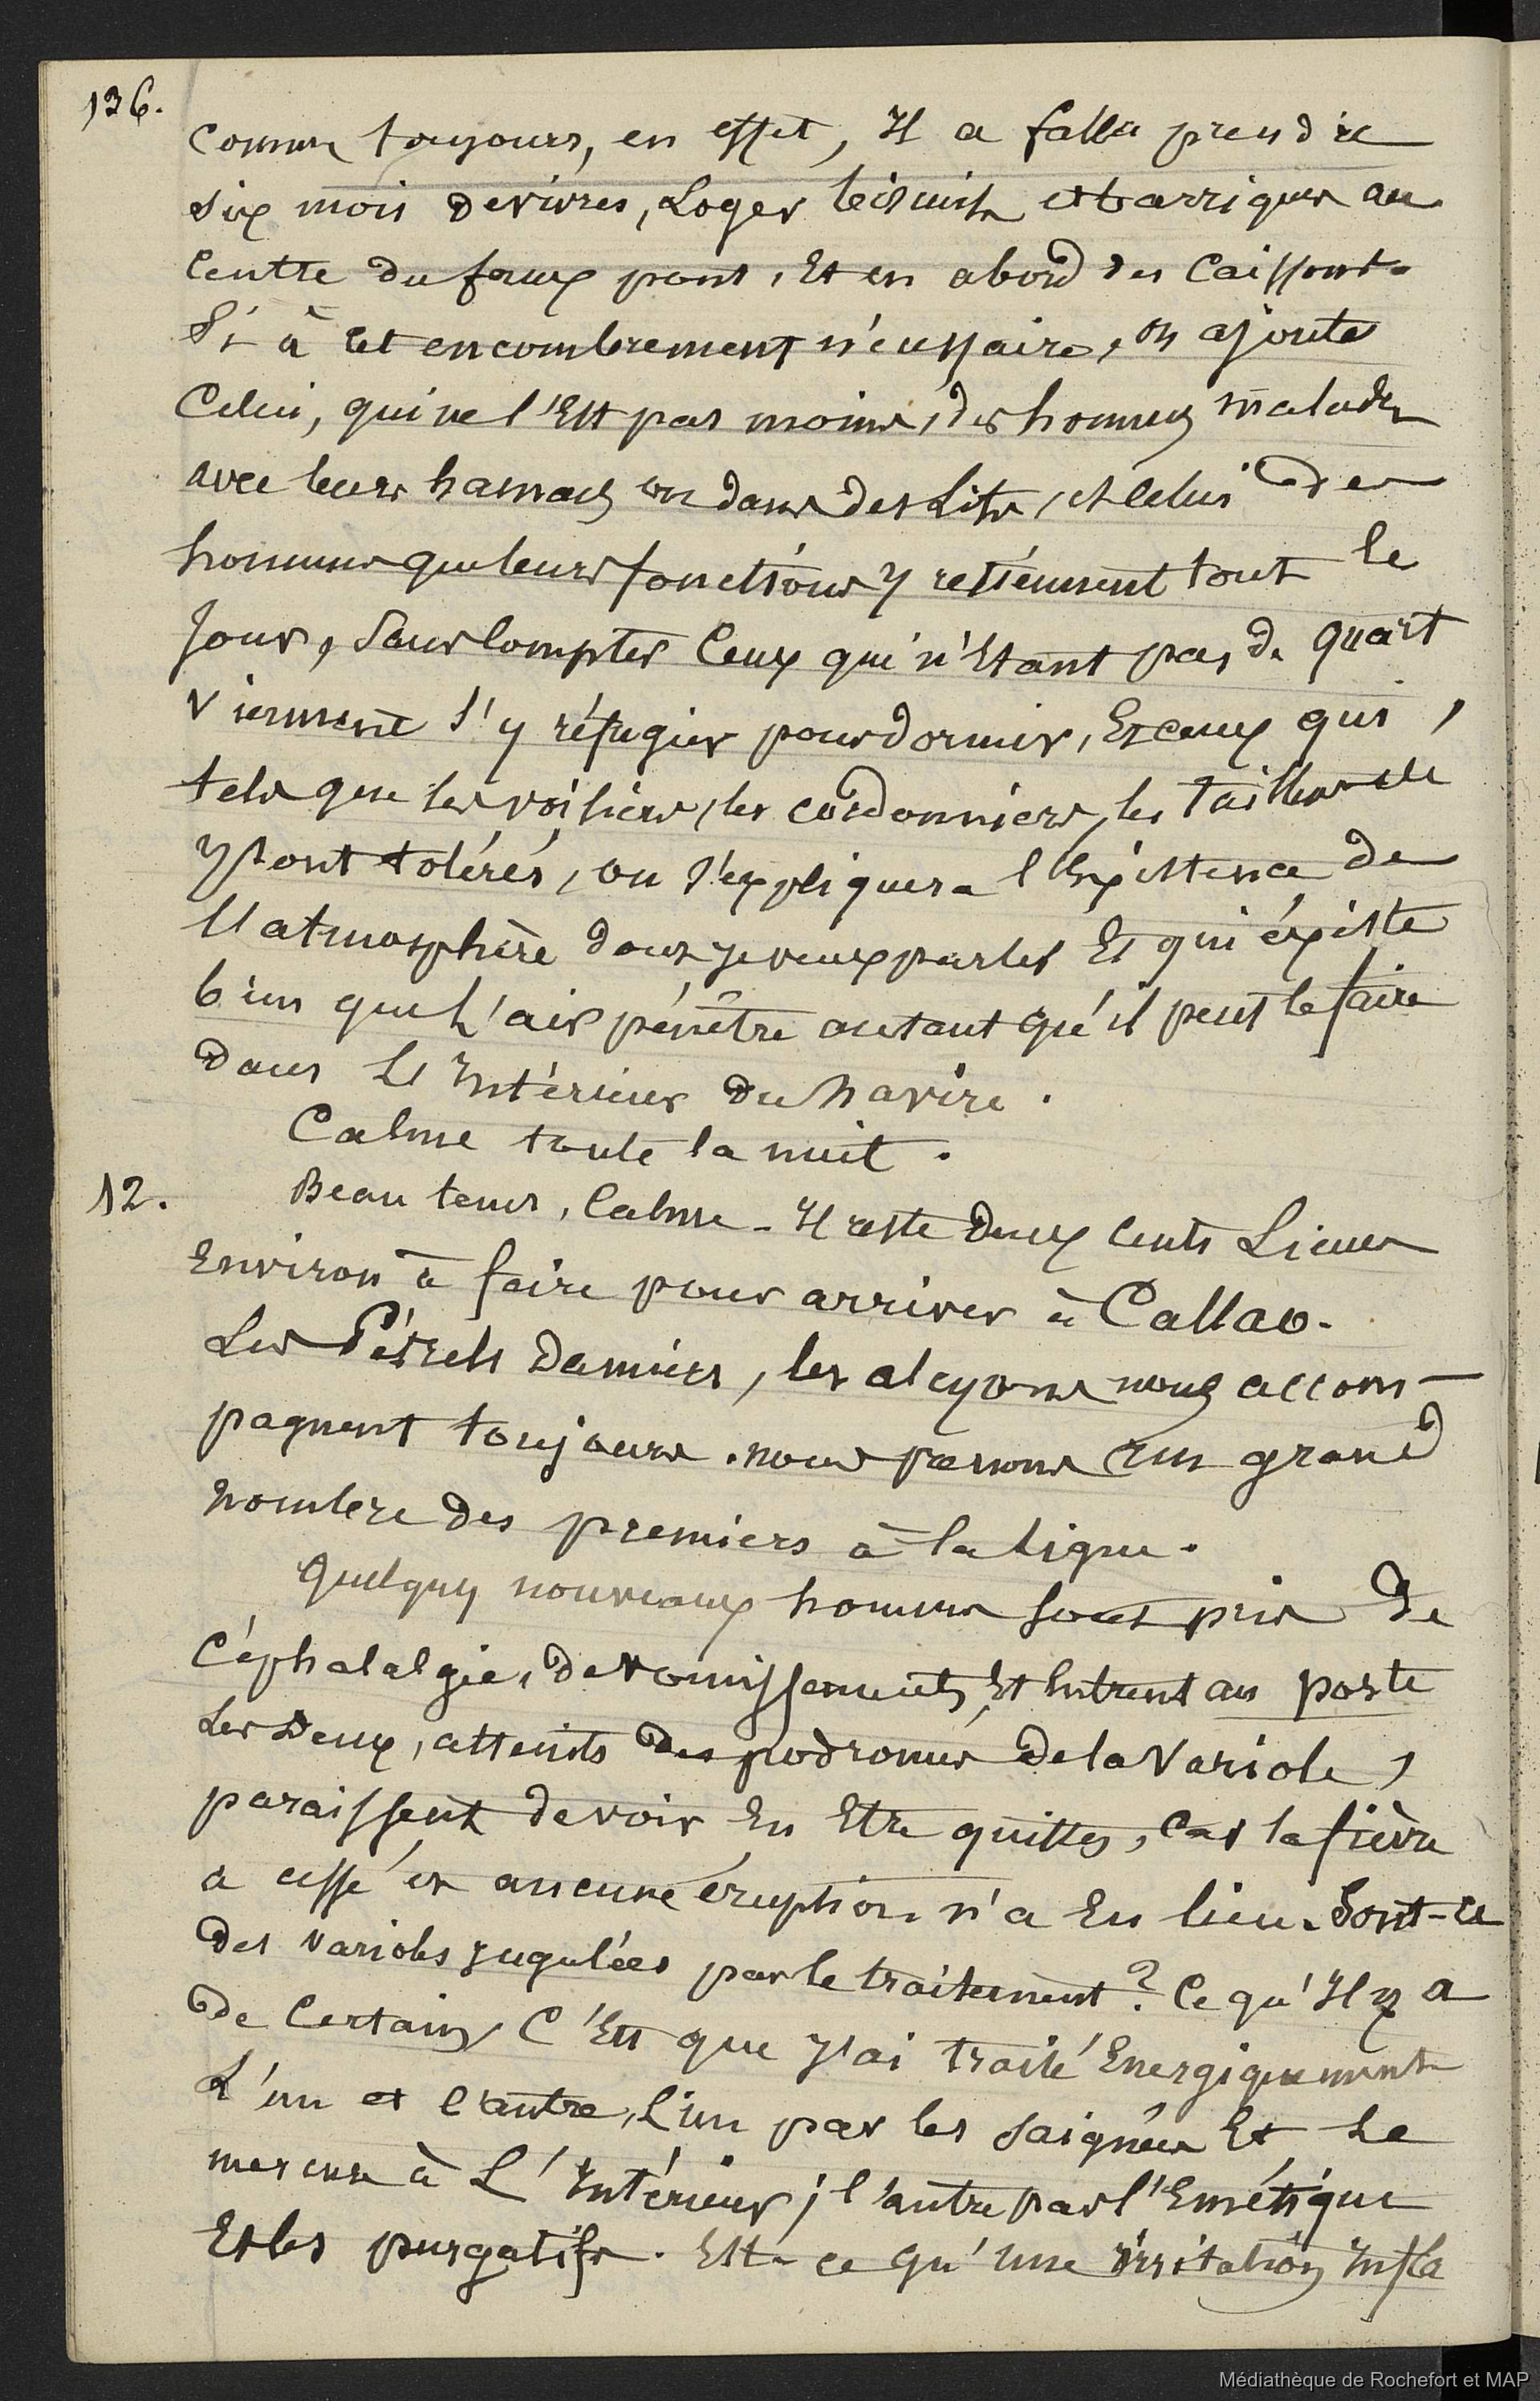 136.
comme toujours, en effet, Il a fallu prendre
six mois de vivres, Loger biscuits et barriques au
centre du faux pont, Et en abord des Caissons.
Si à cet encombrement nécessaire, on ajoute
Celui, qui ne l'Est pas moins, des hommes malades
avec leurs hamacs ou dans des Lits, et celui des
hommes que leurs fonctions y retiennent tout le
Jour, Sans compter Ceux qui n'Etant pas de quart
viennent s'y réfugier pour dormir, Et ceux qui,
tels que les voiliers, les cordonniers, les tailleurs etc
y sont tolérés, on s'expliquera l'Existence de
l'atmosphère dont je veux parler Et qui éxiste
bien que l'air pénètre autant qu'il peut le faire
dans L'Intérieur du Navire.
Calme toute la nuit.
12. Beau tems, Calme - Il reste deux cents Lieues
Environ à faire pour arriver à Callao.
Les Pétrels Damiers, les alcyons nous accom-
pagnent toujours. nous prenons un grand
nombre des premiers à la Ligne.
Quelques nouveaux hommes sont pris de
Céphalalgie, de vomissements, Et Entrent au poste
Les Deux, atteints des podromes de la Variole,
paraissent devoir En Etre quittes, Car la fièvre
a cessé et aucune éruption n'a Eu lieu. Sont-ce
des varioles jugulées par le traitement? Ce qu'Il y a
de Certain, C'Est que j'ai traité Energiquement
L'un et l'autre, L'un par les saignées Et Le
mercure à L'Intérieur; l'autre par l'Emétique
Et les purgatifs. Est-ce qu'une irritation Infla
Médiathèque de Rochefort et MAP